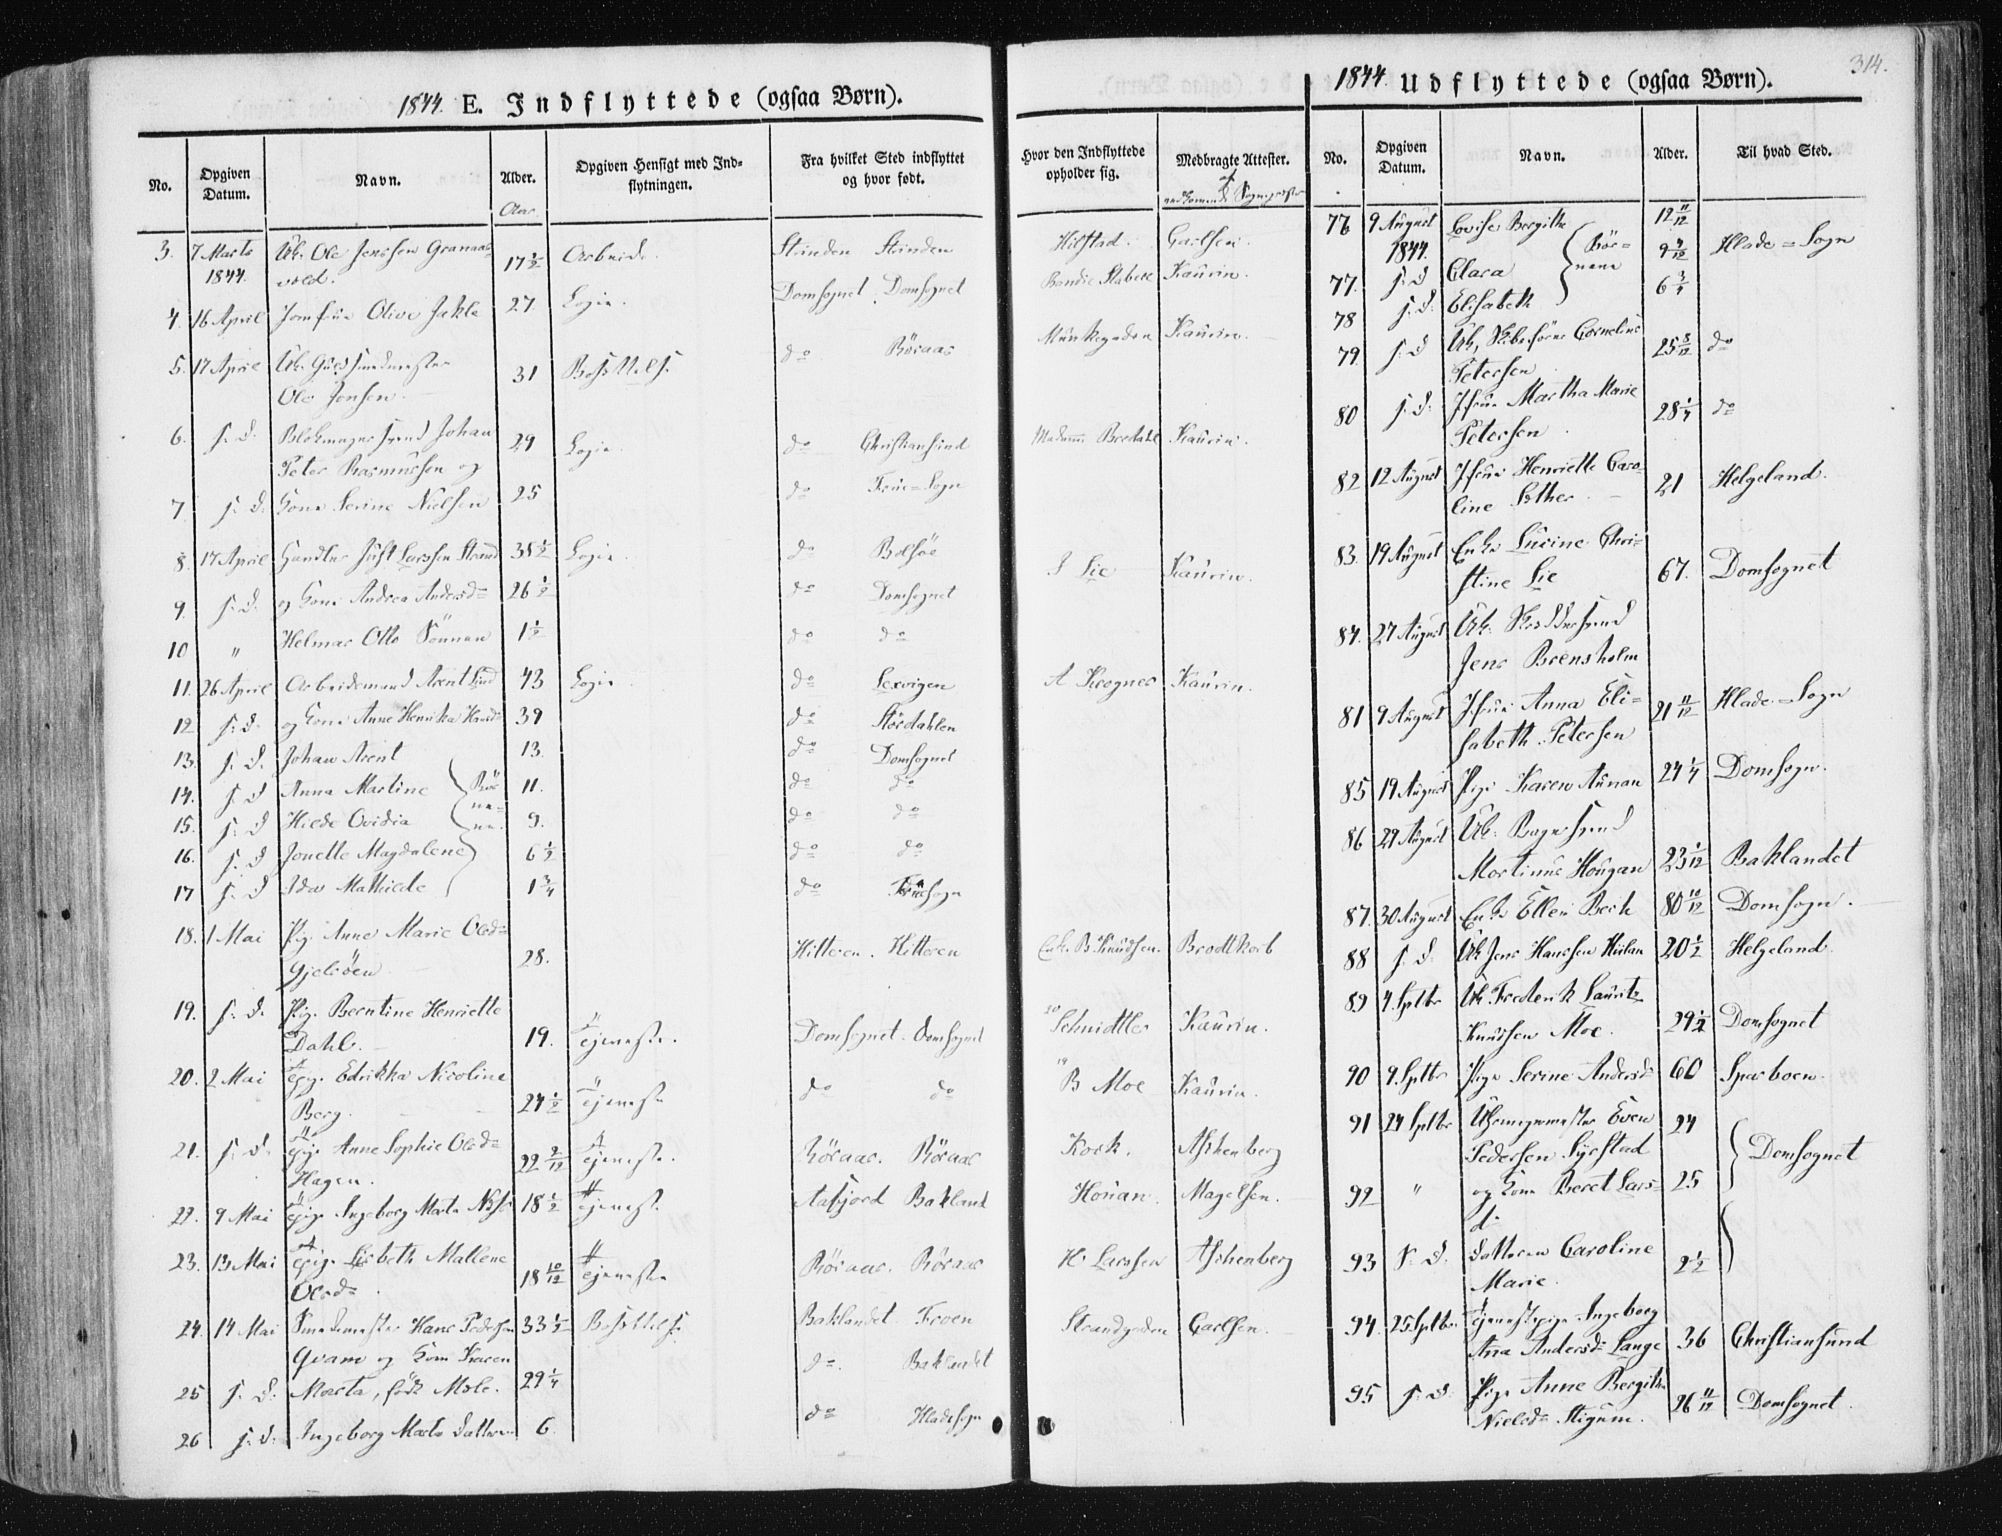 314.
1844. E. Indflyttede (ogsaa Børn).
No. Opgiven Datum. Navn. Alder. Opgiven Hensigt med Indflytningen. Fra hvilket Sted indflyttet og hvor født. Hvor den Indflyttede opholder sig. Medbragte Attester.
Aar
3. 7 Marts 1844. Uk. Ole Jenssen Granaasvold. 17 1/2 Arbeide. Strinden Strinden Carlsen.
4. 16 April Jomfru Olive Jakle 27. Logie. Domsognet Domsognet Kaurin.
5. 17 April Uk. Guldsmedmester Ole Jensen 31 do Röraas Munkegaden Kaurin.
6. s. d. Johan Peter Rasmussen og 29 Logie. do Christiansund Madam Kaurin.
7. s. d. Kone Serine Nielsen 25 do Frue-Sogn
8. 17 April Handler Just Larssen Strand 35 1/2 Logie. do Bolsöe S Lie Kaurin.
9. s. d. og Kone Andrea Andersd= 26 1/2 do Domsognet
10 " Helmar Otto Sönnen 1 1/2 do do
11. 26 April Arbeidsmand Arent Lind 43 Logie do Lexvigen A Krognes Kaurin.
12 s. d. og Kone Anne Henrika 39 do Stördahlen
13. s. d. Johan Arent 13. do Domsognet
14. s. d Anna Martine 11. do do
15. s. d Hilde Ovidia 9. do do
16. s. d Jonette Magdalene 6 1/2 do do
17 s. d Ida Mathilde 1 3/4 do Fruesogn
18. 1 Mai Pige Anne Marie Olsd= Gjelvöen 28. Hitteren. Hitteren Enk. B. Knudsen. Brodtkorb
19. s. d. Pige Berntine Henriette Dahl. 19. Tjeneste. Domsognet. Domsognet Schmidtler Kaurin.
20. 2 Mai Tpige Edrikka Nicoline Berg. 24 1/2 Tjeneste do do B Moe Kaurin.
21. s. d. Tpige Anne Sophie Olsd= Hagen. 22 2/12 Tjeneste. Röraas. Röraas Kork. Aschenberg
22. 9 Mai Tpige Ingeborg Marta 18 1/2 Tjeneste Aafjord Bakland Houan. Magelsen.
23. 13 Mai Tpige Lisbeth Mallene Olsd= 18 10/12 Tjeneste Röraas. Röraas H. Larssen Aschenberg
24. 14 Mai Smedmester Hans Pedersen Qvam og Kone Karen 33 1/2 Baklandet. Froen Strandgaden Carlsen.
25 s. d. Marta, föd Moe. 29 1/4 do. Baklandet
26 s. d. Ingeborg Marta Datteren 6. do Hladesogn
1844. Udflyttede (ogsaa Børn).
No. Opgiven Datum. Navn. Alder. Til hvad Sted.
76 9 August 1844. Lovise Bergithe 12 11/12 Hlade=Sogn
77. s. d Clara Börnene 9 4/12
78 s. d. Elisabeth 6 3/4
79. s. d Uk, Skibsförer Cornelius Petersen 25 8/12 do
80 s. d. Jfrue Martha Marie Petersen 28 1/4 do
82 12 August Jfrue Henriette Caroline Sother 21 Helgeland.
83. 19 August Enke Lucine Christine Lie 67. Domsognet
84. 27 August Uk. Skreddersvend Jens Brensholm
81 9 August Jfrue Anna Elisabeth Petersen 21 11/12 Hlade=Sogn
85 19 August Pige Karen Aunan 24 1/4 Domsogn.
86 29 August Uk. Bagersvend Martinus Hougan 23 1/12 Baklandet
87. 30 August Enke Ellen Berk 80 10/12 Domsogn.
88 s. d. Uk Jens Hanssen 20 1/2 Helgeland
89 4. Sptbr Uk. Frederik Lauritz Knudsen Moe. 29 1/2 Domsognet
90 9. Sptbr Pige Serine Andersd= 60 Sparboen.
91 24 Sptbr Even Pedersen Syrstad 24 Domsognet
92 " og Kone Beret Larsd= 25
93 s. d. Datteren Caroline Marie. 2 1/2
94. 25 Sptbr Tjenestepige Ingeborg Ana Andersd= Lange 36 Christiansund
95 s. d. Pige Anne Bergitha Nielsd= Stigum. 26 11/12 Domsognet.